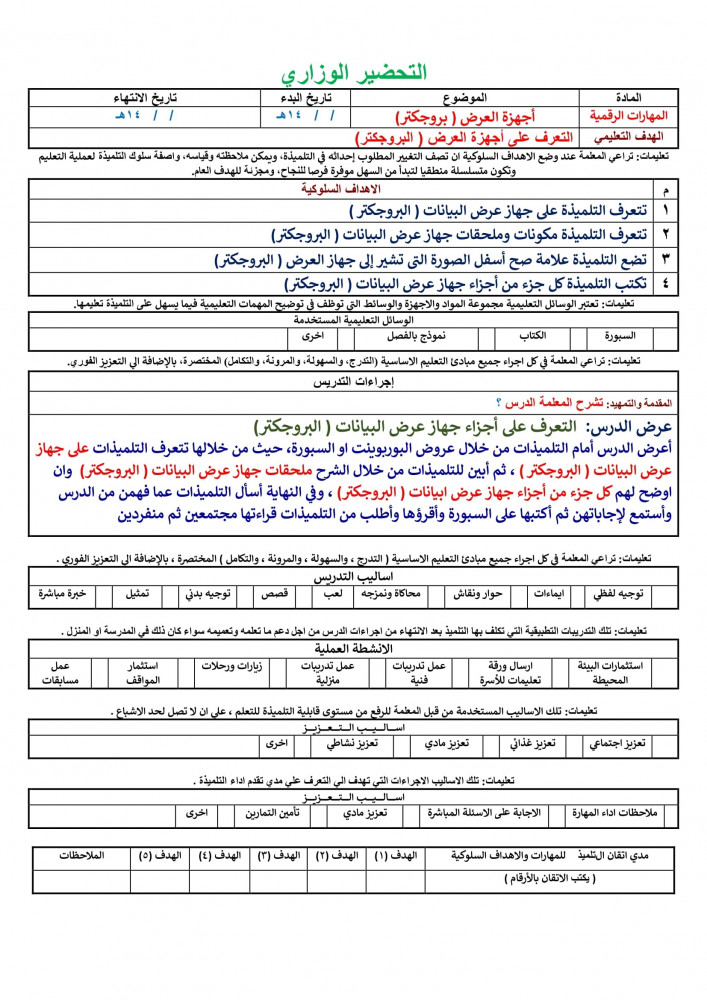 التحضير الوزاري
المادة الموضوع تاريخ البدء تاريخ الانتهاء
المهارات الرقمية أجهزة العرض ( بروجكتر) / / ١٤هـ / / ١٤هـ
الهدف التعليمي التعرف على أجهزة العرض ( البروجكتر)
تعليمات: تراعي المعلمة عند وضع الاهداف السلوكية ان تصف التغيير المطلوب إحداثه في التلميذة، ويمكن ملاحظته وقياسه، واصفة سلوك التلميذة لعملية التعليم
وتكون متسلسلة منطقيا لتبدأ من السهل موفرة فرصا للنجاح، ومجزنة للهدف العام.
م الاهداف السلوكية
١ تتعرف التلميذة على جهاز عرض البيانات ( البروجكتر )
٢ تتعرف التلميذة مكونات وملحقات جهاز عرض البيانات ( البروجكتر)
٣ تضع التلميذة علامة صح أسفل الصورة التى تشير إلى جهاز العرض ( البروجكتر)
٤ تكتب التلميذة كل جزء من أجزاء جهاز عرض البيانات ( البروجكتر)
تعليمات: تعتبر الوسائل التعليمية مجموعة المواد والاجهزة والوسائط التي توظف في توضيح المهمات التعليمية فيما يسهل على التلميذة تعليمها.
الوسائل التعليمية المستخدمة
السبورة الكتاب نموذج بالفصل اخرى
تعليمات: تراعي المعلمة في كل اجراء جميع مبادئ التعليم الاساسية (التدرج، والسهولة، والمرونة، والتكامل) المختصرة، بالإضافة الي التعزيز الفوري.
إجراءات التدريس
المقدمة والتمهيد: تشرح المعلمة الدرس ؟
عرض الدرس: التعرف على أجزاء جهاز عرض البيانات ( البروجكتر)
أعرض الدرس أمام التلميذات من خلال عروض البوربوينت او السبورة، حيث من خلالها تتعرف التلميذات على جهاز
عرض البيانات ( البروجكتر ) ، ثم أبين للتلميذات من خلال الشرح ملحقات جهاز عرض البيانات ( البروجكتر) وان
اوضح لهم كل جزء من أجزاء جهاز عرض ابيانات ( البروجكتر) ، وفي النهاية أسأل التلميذات عما فهمن من الدرس
وأستمع لإجاباتهن ثم أكتبها على السبورة وأقرؤها وأطلب من التلميذات قراءتها مجتمعين ثم منفردين
تعليمات: تراعي المعلمة في كل اجراء جميع مبادئ التعليم الاساسية ( التدرج ، والسهولة ، والمرونة ، والتكامل ) المختصرة ، بالإضافة الي التعزيز الفوري .
اساليب التدريس
توجيه لفظي ايماءات حوار ونقاش محاكاة ونمزجه لعب قصص توجيه بدني تمثيل خبرة مباشرة
تعليمات: تلك التدريبات التطبيقية التي تكلف بها التلميذ بعد الانتهاء من اجراءات الدرس من اجل دعم ما تعلمه وتعميمه سواء كان ذلك في المدرسة او المنزل .
الانشطة العملية
استثمارات البيئة ارسال ورقة عمل تدريبات عمل تدريبات زيارات ورحلات استثمار عمل
المحيطة تعليمات للأسرة فنية منزلية المواقف مسابقات
تعليمات: تلك الاساليب المستخدمة من قبل المعلمة للرفع من مستوى قابلية التلميذة للتعلم ، علي ان لا تصل لحد الاشباع .
اساليب التعزيز
تعزيز اجتماعي تعزيز غذائي تعزيز مادي تعزيز نشاطي اخرى
تعليمات: تلك الاساليب الاجراءات التي تهدف الي التعرف علي مدي تقدم اداء التلميذة .
اساليب التعزيز
ملاحظات اداء المهارة الاجابة على الاسئلة المباشرة تعزيز مادي تأمين التمارين اخرى
مدي اتقان التلميذ للمهارات والاهداف السلوكية الهدف (١) الهدف (٢) الهدف (٣) الهدف (٤) الهدف (٥) الملاحظات
( يكتب الاتقان بالأرقام )